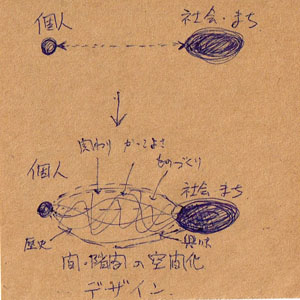 個人
社会・まち
関わり
かっこよさ
ものづくり
個人
社会 まち
歴史
興味
間・隔害の空間化
デザイン